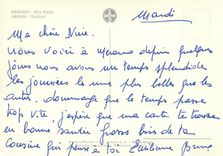 MERANO - Alto Adige
MERAN - Südtirol
Mardi
Ma chère Nine.
Nous voici à Merano depuis quelques
jours nous avons un temps splendide
les journées les unes plus belles que les
autres. dommage que le temps passe
trop vite, j'espère que ma carte te trouvera
en bonne santé. Grosses bises de ta
cousine qui pense à toi